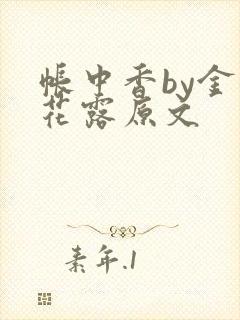 帐中香by金
花露原文
素年.1